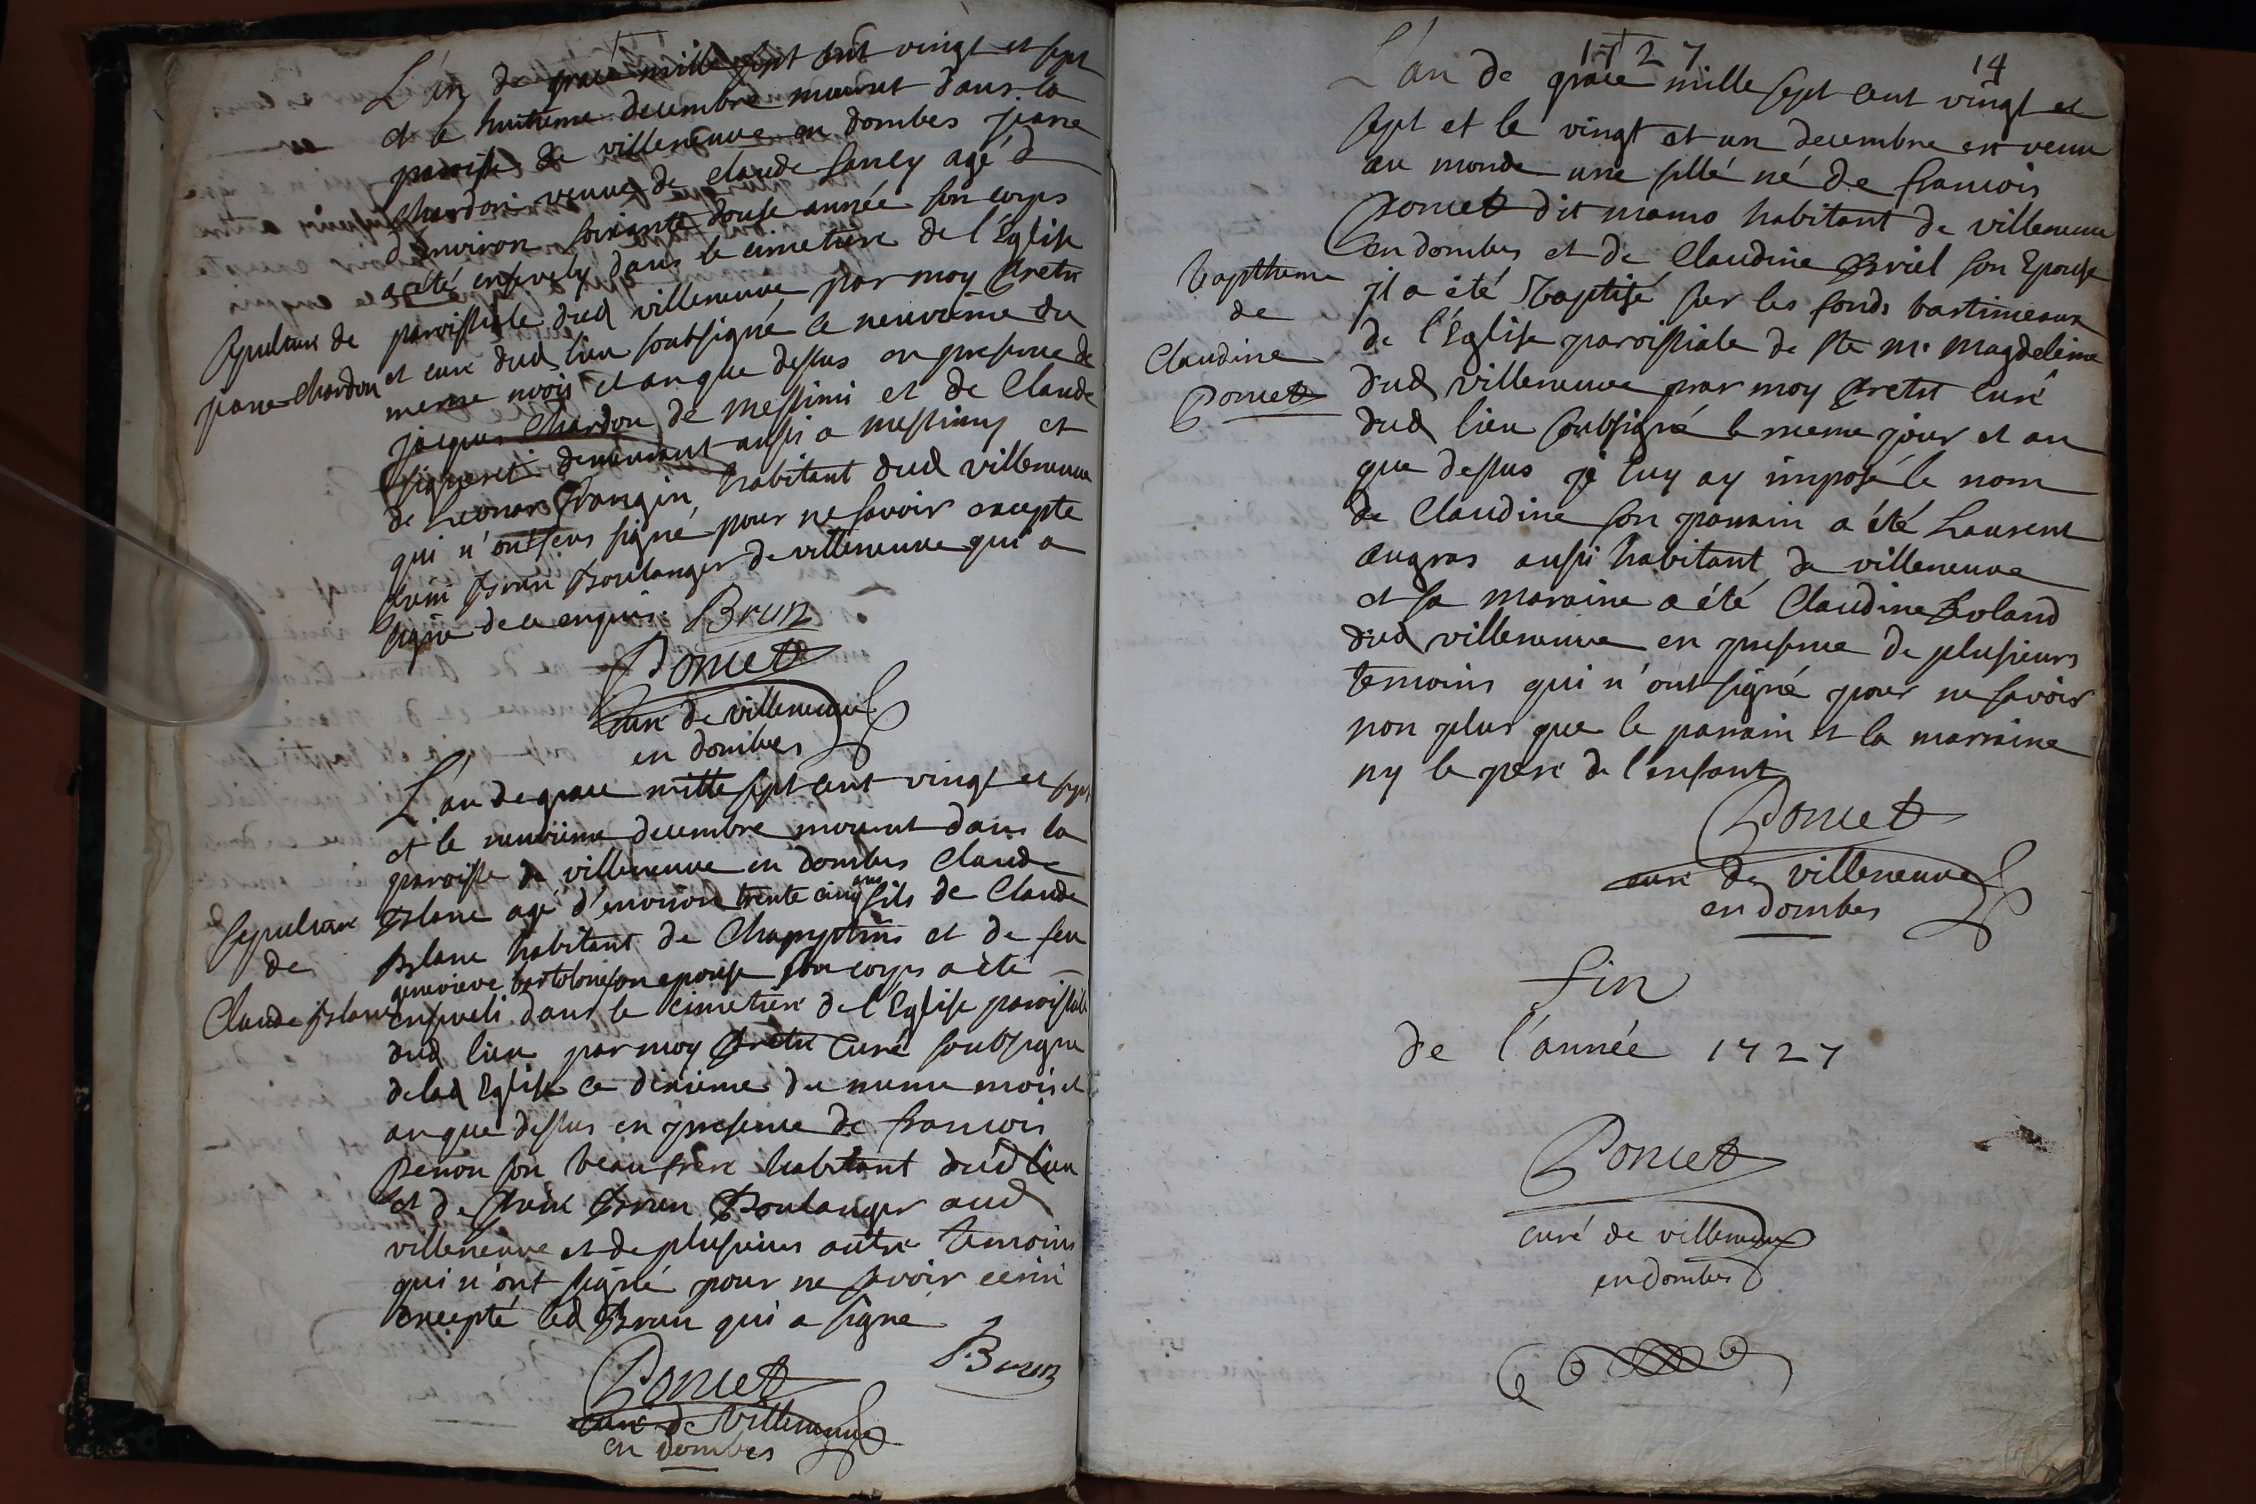 L'an de grace mille sept cent vingt et sept
et le huitieme decembre mourut dans la
paroisse de villeneuve en dombes jeane
chardon veuve de claude sancy agé d
d'environ soixante douse année son corps
a été ensevely dans le cimetiere de l'Eglise
paroissiale dud villeneuve par moy pretre
et curé dud lieu soubsigné le neuvieme du
meme mois et an que dessus en presense de
jacques chardon de messimi et de Claude
demeurant aussi a messimy et
de Leonar habitant dud villeneuve
qui n'ont signé pour ne savoir excepte
Brun Boulanger de villeneuve qui a
signé de ce enquis. Brun
Poncet
curé de villeneuve
en dombes
Sepulture de
jeane chardon
L'an de grace mille sept cent vingt et sept
et le neuvieme decembre mourut dans la
paroisse de villeneuve en dombes Claude
Blanc agé d'environ trente cinq ans fils de Claude
Blanc habitant de et de feu
genevieve son epouse son corps a été
enseveli dans le cimetiere de l'Eglise paroissiale
dud lieu par moy pretre curé soubsigne
delad Eglise le dixieme du meme mois et
an que dessus en presense de francois
penon son beau frere habitant dud lieu
et de Brun Boulanger aud
villeneuve et de plusieurs autre temoins
qui n'ont signé pour ne savoir ecrire
excepté led Brun qui a signe
Brun
Poncet
curé de villeneuve
en dombes
Sepulture
de
Claude Blanc
1727 14
L'an de grace mille sept cent vingt et
sept et le vingt et un decembre est venu
au monde une fillé né de francois
Poncet dit mamo habitant de villeneuve
en dombes et de Claudine Briel son Epouse
il a été Baptisé sur les fonds bartimeaux
de l'Eglise paroissiale de ste Me Magdeleine
dud villeneuve par moy pretre curé
dud lieu soubsigné le meme jour et an
que dessus je luy ay imposé le nom
de Claudine son parrain a été Laurent
augras aussi habitant de villeneuve
et sa maraine a été Claudine Roland
dud villeneuve en presense de plusieurs
temoins qui n'ont signé pour ne savoir
non plus que le parain et la marraine
ny le pere de l'enfant
Poncet
curé de villeneuve
en dombes
Baptheme
de
Claudine
Poncet
fin
de l'année 1727
Poncet
curé de villeneuve
en dombes